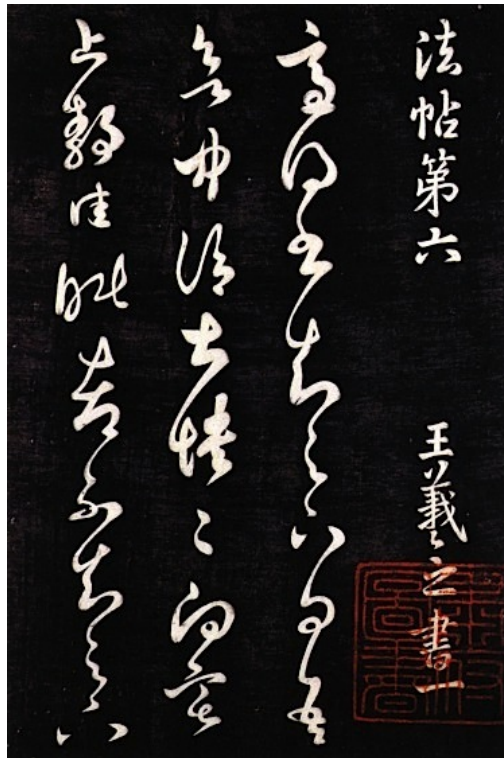 法帖第六
王羲之書一
適得書知足下問吾
欲中冷甚憒〻向宅
上靜佳眠都不知足下